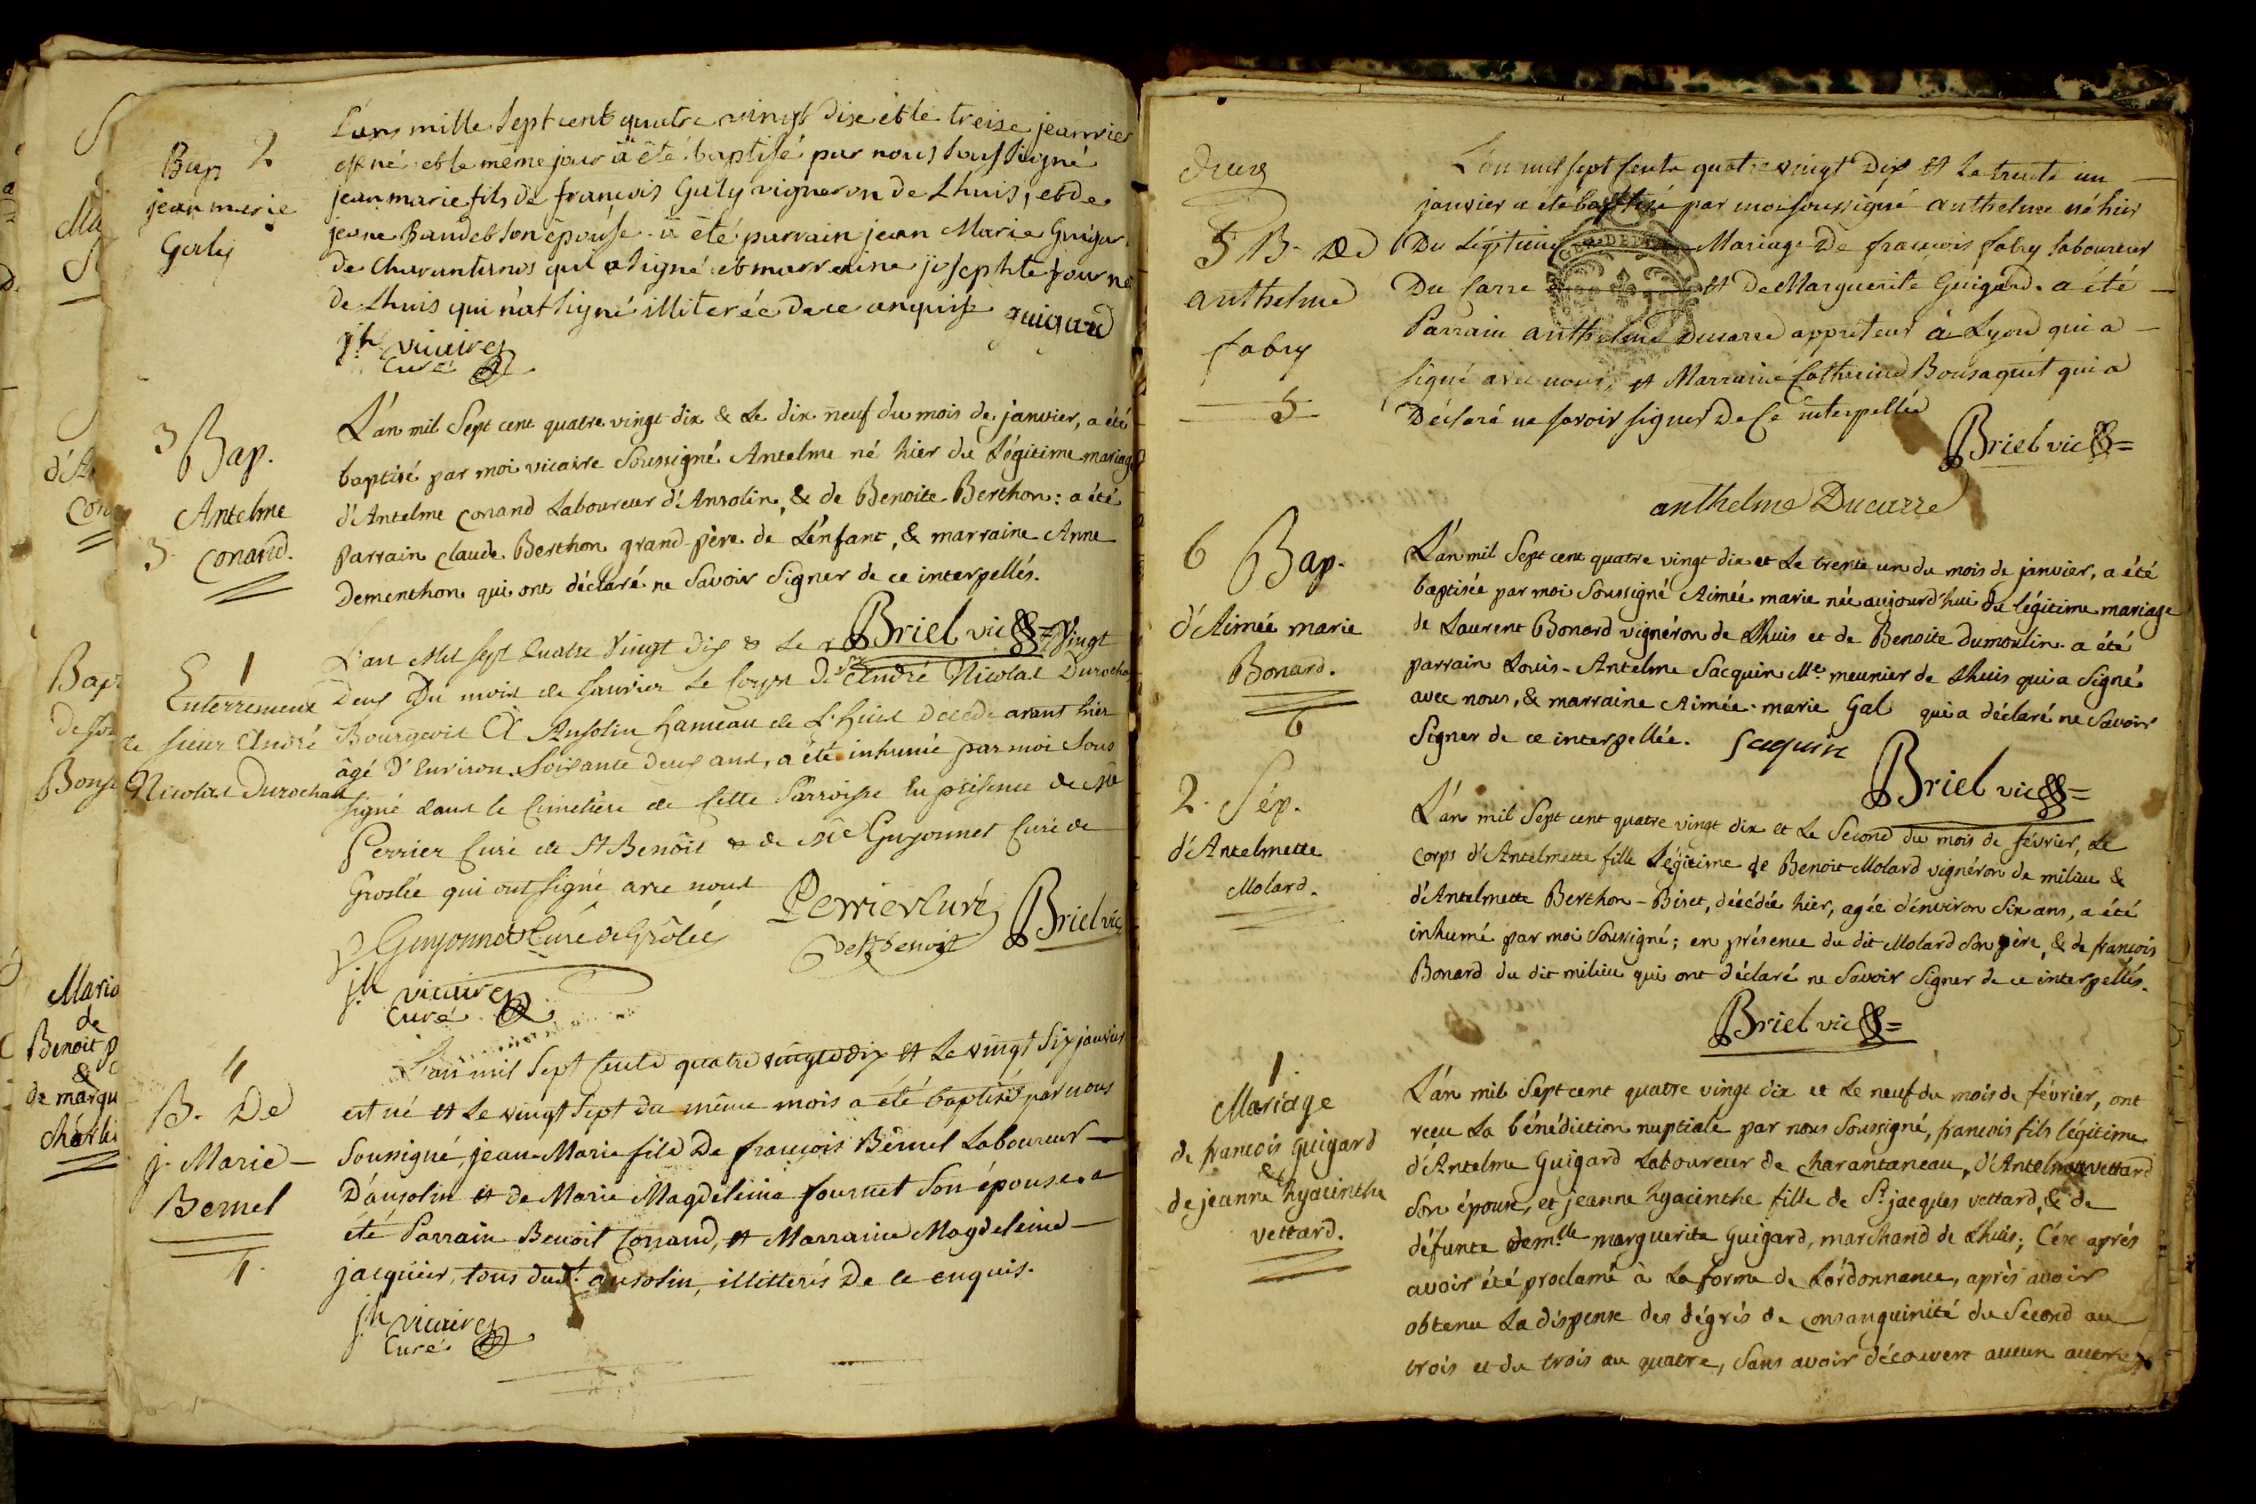 Bap 2
jean marie
Galy
L'ans mille sept cents quatre vingt dixe et le treise jeanvier
est né et le même jour a été baptisé par nous soussigné
jean marie fils de françois Galy vigneron de Lhuis, et de
jeane Baudet son épouse a été parrain jean Marie Guigar
de Charuntunos qui a signé et marraine josephte fourne
de Lhuis qui n'at signé illiterée de ce anquise guigard
jh vicaire
Curé
3 Bap.
Antelme
3 Conand.
L'an mil Sept cent quatre vingt dix & Le dix neuf du mois de janvier, a été
baptisé par moi vicaire Soussigné Antelme né hier du Légitime mariage
d'Antelme Conand Laboureur d'Ansolin, & de Benoite Berthon : a été
parrain Claude Berthon grand-père de L'énfant, & marraine Anne
Dementhon qui ont déclaré ne Savoir Signer de ce interpellés.
Briel vic
1
Enterrement
de sieur André
Nicolas Durochat
L'an Mil sept Quatre Vingt dix & Le Vingt
Deux Du mois de Janvier Le Corps De sr André Nicolas Durocha
Bourgeois A Ansolin hameau de L'huis décédé avant hier
âgé d'Environ Soixante deux ans, a été inhumé par moi Sous
signé dans le Cimetière de Cette Parroisse En présence de Mre
Perrier Curé de St Benoit & de Mre Guyonnet Curé de
Groslée qui ont signé avec nous
Guyonnet Curé de Grôlée
Perrier Curé
de St benoit
Briel vic
jh vicaire
Curé
4
B. De
j. Marie
Bernel
4
L'an mil Sept Cents quatre vingts dix et Le vingt Six janvier
est né et Le vingt Sept du même mois a été baptisé par nous
Soussigné, jean-Marie fils De françois Bernel Laboureur
D'ansolin et de Marie Magdeleine fournet Son épouse. a
été Parrain Benoit Conand, et Marraine Magdeleine
jacquier, tous dudt. ansolin, illitterés De ce enquis.
jh vicaire
Curé
5 B. De
anthelme
fabry
5
L'an mil sept cents quatre vingt Dix et Le trente un
janvier a été baptisé par moi soussigné anthelme né hier
Du Légitime Mariage De françois fabry laboureur
Du Carre et De Marguerite Guigard. a été
Parrain anthelme Ducarre appreteur à Lyon qui a
signé avec nous, et Marraine Catherine Bonsaquet qui a
Déclaré ne savoir signer De Ce interpellée
Briel vic
anthelme Ducarre
6 Bap.
d'Aimée marie
Bonard.
6
L'an mil Sept cent quatre vingt dix et Le trente un du mois de janvier, a été
baptisée par moi Soussigné Aimée marie née aujourd'hui du légitime mariage
de Laurent Bonard vignéron de Lhuis et de Benoite Dumoulin. a été
parrain Louis-Antelme Jacquin Me meunier de Lhuis qui a Signé
avec nous, & marraine Aimée-marie Gal qui a déclaré ne Savoir
Signer de ce interpellée. Jaquin
Briel vic
2. Sép.
d'Antelmette
Molard.
L'an mil Sept cent quatre vingt dix et Le Second du mois de février, Le
Corps d'Antelmette fille Légitime de Benoit Molard vignéron de milieu &
d'Antelmette Berthon-Biset, décédée hier, agée d'énviron Six ans, a été
inhumé par moi Soussigné ; en présence du dit Molard Son père, & de françois
Bonard du dit milieu qui ont déclaré ne Savoir Signer de ce interpellés.
Briel vic
1
Mariage
de françois Guigard
&
de jeanne hyacinthe
vettard.
L'an mil Sept cent quatre vingt dix et Le neuf du mois de février, ont
reçu La bénédiction nuptiale par nous Soussigné, françois fils légitime
d'Antelme Guigard Laboureur de Charantaneau, d'Antelme vettard
Son épouse, et jeanne hyacinthe fille de Sr. jacques vettard, & de
défunte demlle marguerite Guigard, marchand de Lhuis ; Cése après
avoir été proclamé à La forme de Lórdonnance, après avoir
obtenu La dispense des dégrés de consanguinité du Second au
trois et du trois au quatre, Sans avoir découvert aucun autre